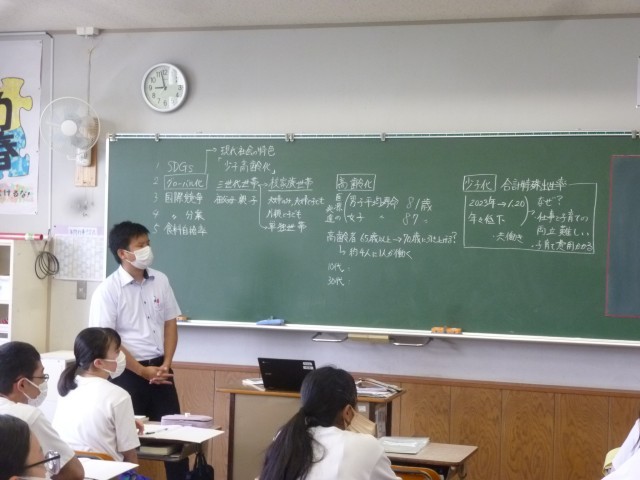 現代社会の特色
「少子高齢化」
1 SDGs
2 グローバル化
3 国際競争
4 〃 分業
5 食料自給率
三世代世帯→核家族世帯
夫婦のみ、夫婦と子ども
片親と子ども
単独世帯
高齢化
男子平均寿命 81歳
女子 〃 87〃
高齢者 65歳以上→70歳に引き上げる?
→約4人に1人が働く
10代:
30代:
少子化 合計特殊出生率
2023年→1.20 なぜ?
年々低下
・共働き
・仕事と子育ての
両立難しい
・子育て費用
春